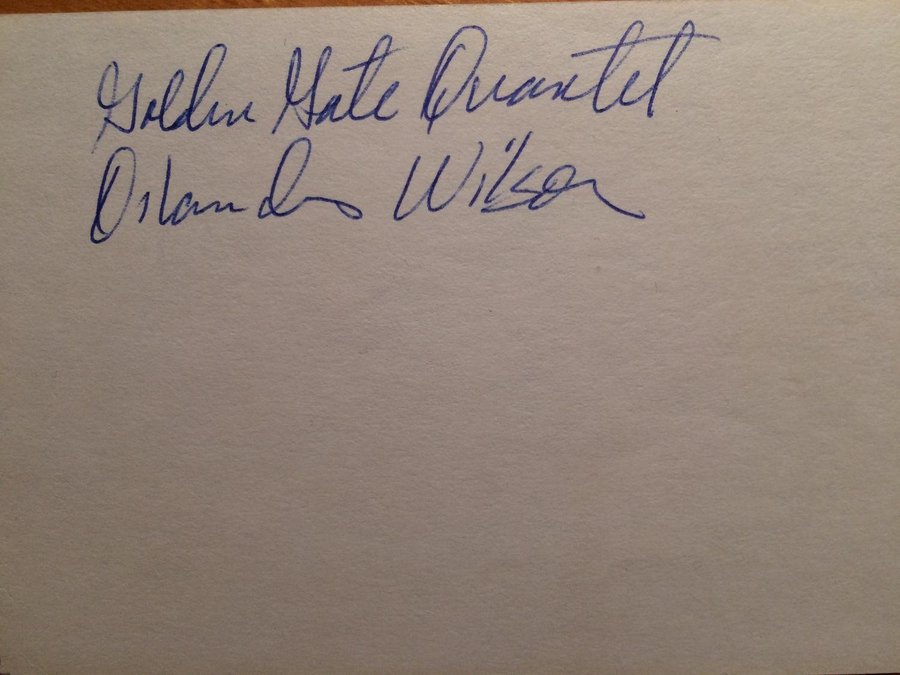 Golden Gate Quartet
Orlandus Wilson